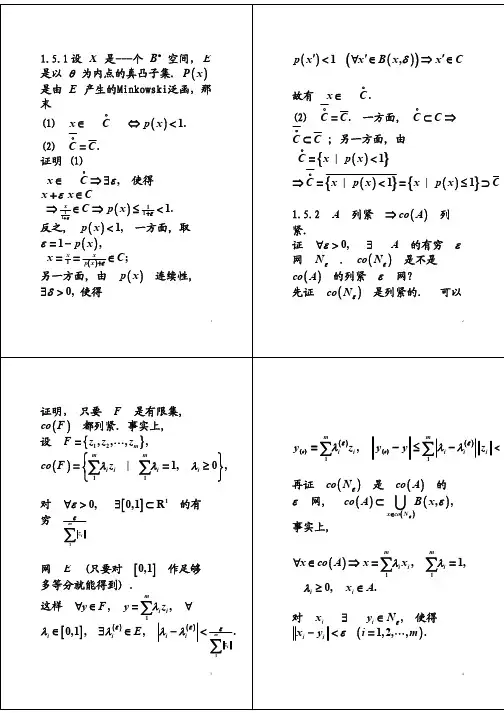 1.5.1设 X 是一个 B* 空间, E
是以 θ 为内点的真凸子集. P(x)
是由 E 产生的Minkowski泛函, 那
末
(1) x∈ C° ⇔ p(x)<1.
(2) \overline{C°} = \overline{C}.
证明 (1)
x∈ C° ⇒∃ε, 使得
x+ε x∈C
⇒ x/(1/(1+ε)) ∈C⇒ p(x)≤ 1/(1+ε) <1.
反之, p(x)<1, 一方面, 取
ε=1−p(x),
x= x/1 = x/(p(x)+ε) ∈C;
另一方面, 由 p(x) 连续性,
∃δ>0, 使得
p(x′)<1 (∀x′∈B(x,δ))⇒x′∈C
故有 x∈ C°.
(2) \overline{C°} = \overline{C}. 一方面, C°⊂C⇒
\overline{C°}⊂\overline{C} ; 另一方面, 由
C°={x | p(x)<1}
⇒\overline{C°}=\overline{{x | p(x)<1}}={x | p(x)≤1}⊃\overline{C}
1.5.2 A 列紧 ⇒co(A) 列
紧.
证 ∀ε>0, ∃ A 的有穷 ε
网 N_ε . co(N_ε) 是不是
co(A) 的列紧 ε 网?
先证 co(N_ε) 是列紧的. 可以
证明, 只要 F 是有限集,
co(F) 都列紧. 事实上,
设 F={z₁,z₂,⋯,z_m},
co(F)={∑₁^m λ_i z_i | ∑₁^m λ_i=1, λ_i≥0},
对 ∀ε>0, ∃[0,1]⊂R¹ 的有
穷 ε/∑₁^m‖z_i‖
网 E (只要对 [0,1] 作足够
多等分就能得到).
这样 ∀y∈F, y=∑₁^m λ_i z_i, ∀
λ_i∈[0,1], ∃λ_i^(ε)∈E, |λ_i−λ_i^(ε)|< ε/∑₁^m‖z_i‖ .
y_(ε)=∑₁^m λ_i^(ε) z_i, ‖y_(ε)−y‖≤∑₁^m |λ_i−λ_i^(ε)| ‖z_i‖<
再证 co(N_ε) 是 co(A) 的
ε 网, co(A)⊂ ⋃_{x∈co(N_ε)} B(x,ε),
事实上,
∀x∈co(A)⇒x=∑₁^m λ_i x_i, ∑₁^m λ_i=1,
λ_i≥0, x_i∈A.
对 x_i ∃ y_i∈N_ε, 使得
‖x_i−y_i‖<ε (i=1,2,⋯,m).